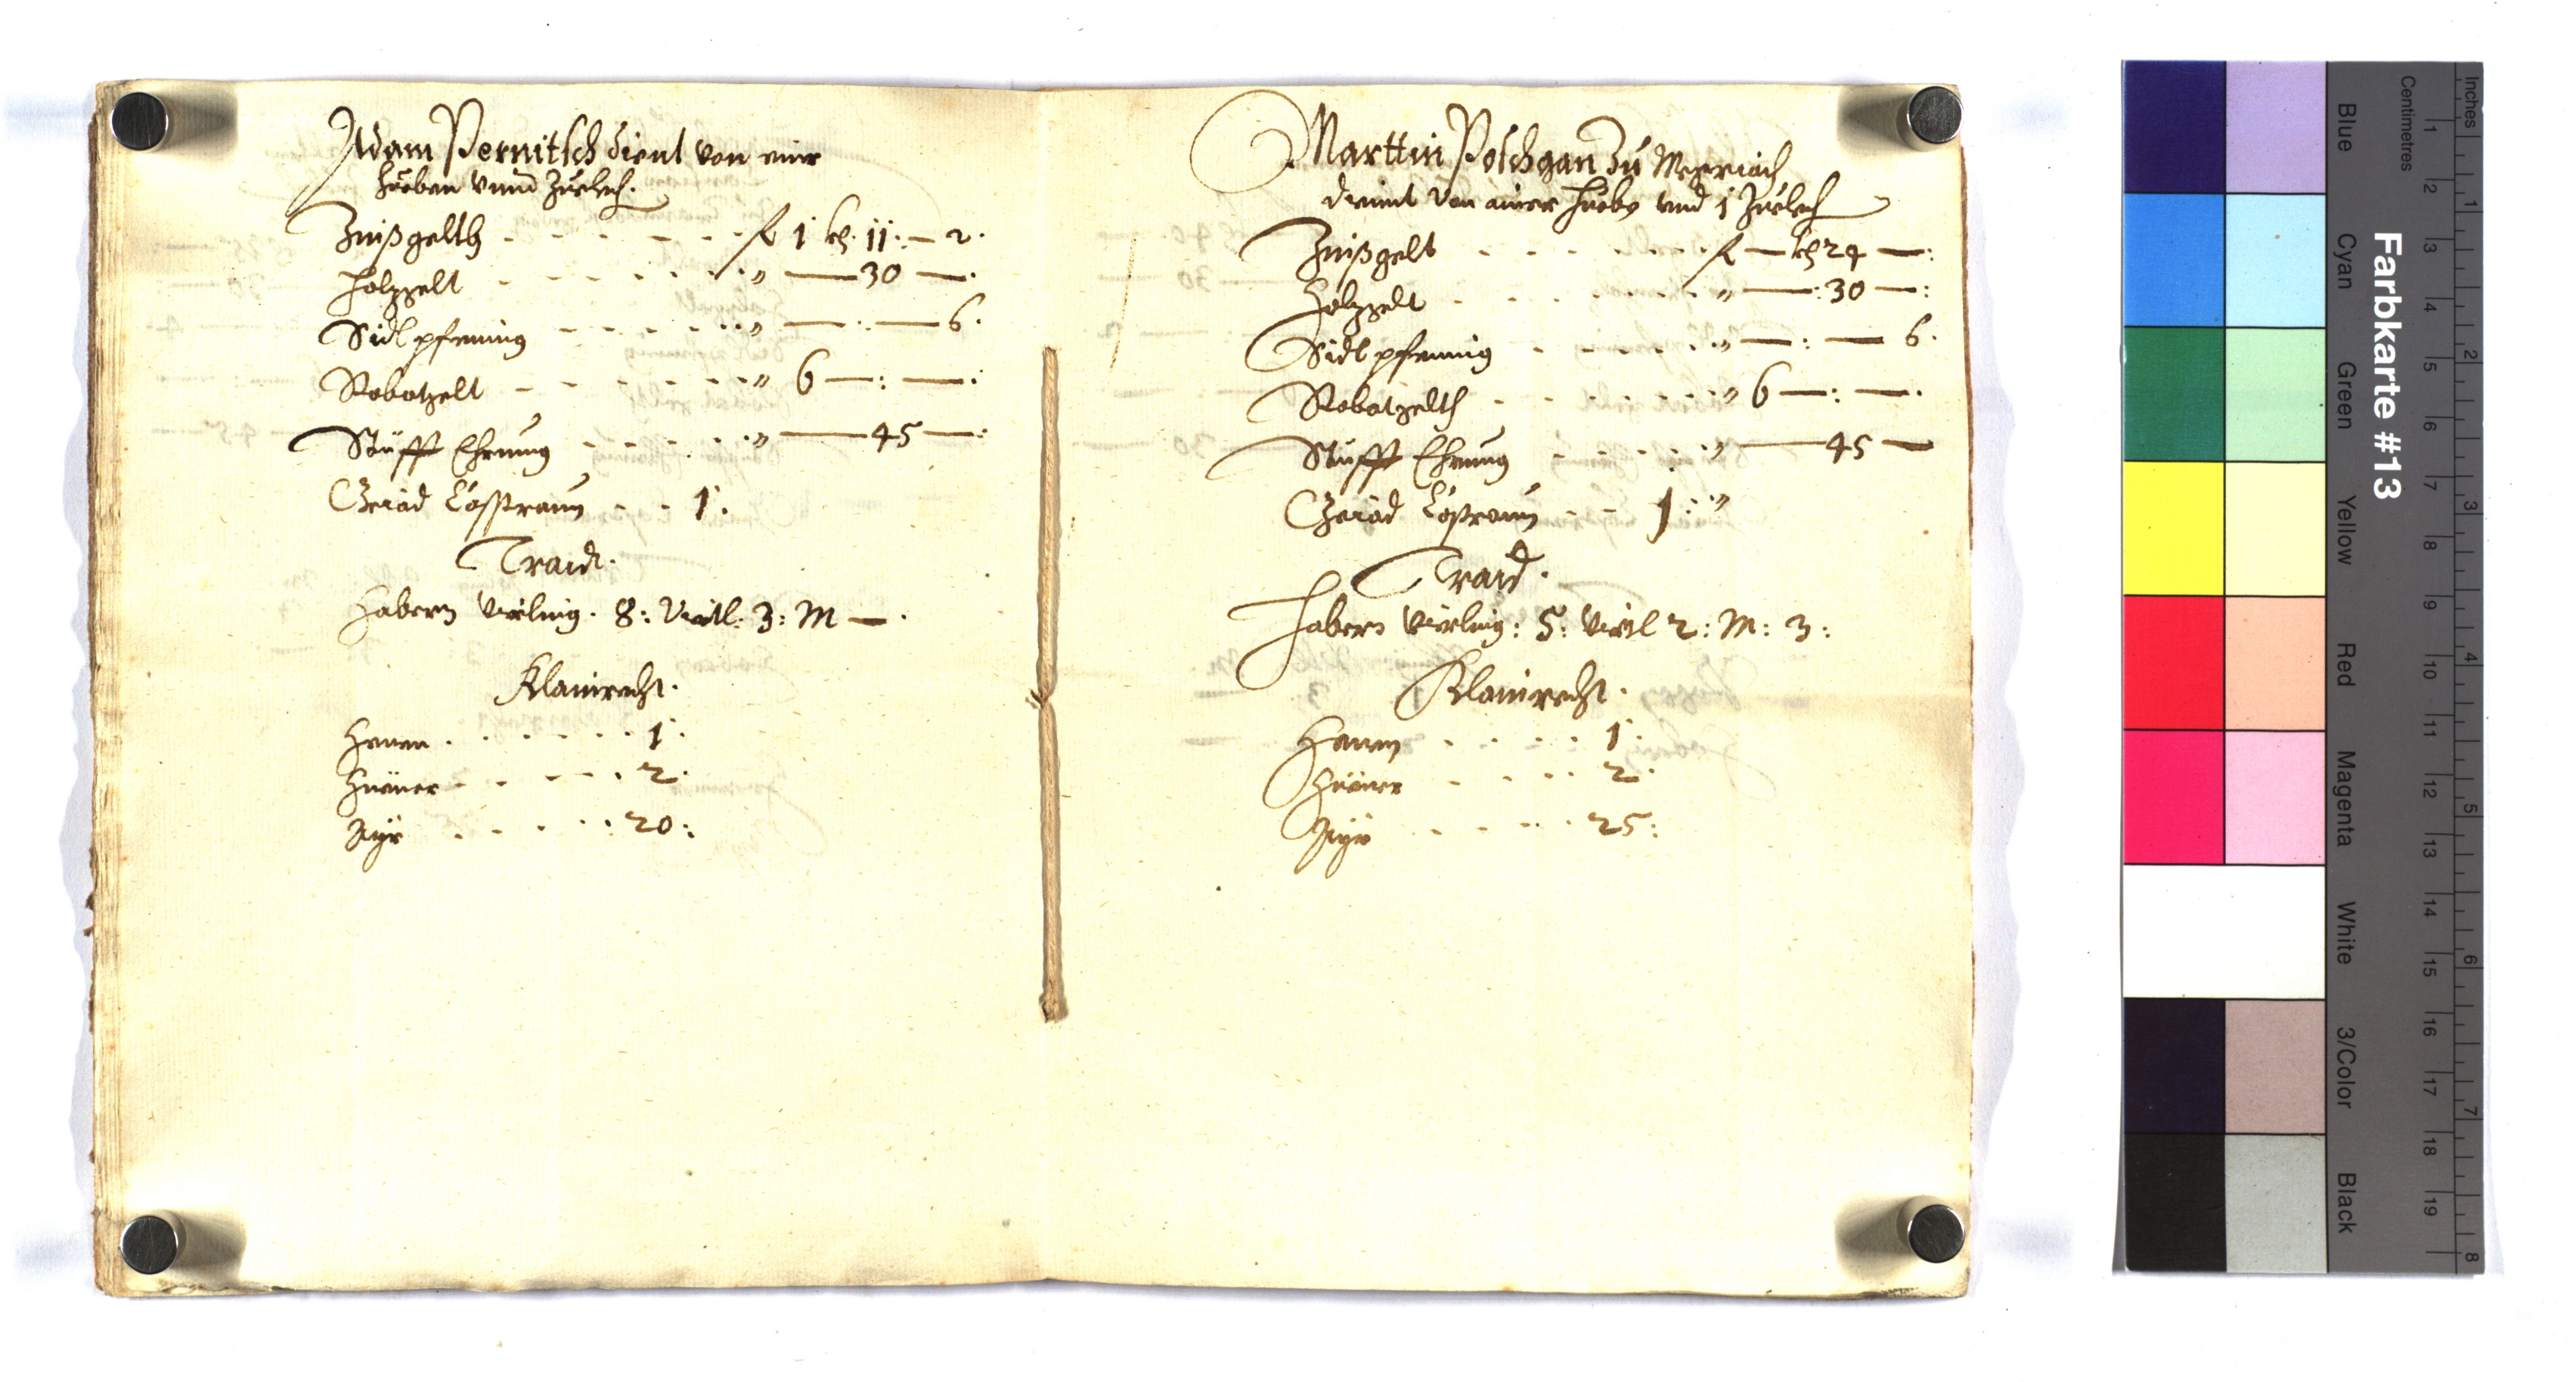 Adam Pernitsch dient von einer
Hueben vnnd Zuelech.
Zinßgelth - - - - - - - fl 1 kh. 11. — 2.
Holzgelt - - - - - - " — 30 —.
Sidlpfening - - - - - " — : — 6.
Robotgelt - - - - - - " 6 — : — :
Stüfft Ehrung - - - - - " — 45 — :
Gejaid Costraun - - 1.
Traidt.
Habern Vierling. 8: Viertl: 3: M —.
Klainrecht.
Hennen . . . . . . 1.
Hüener - - - - . 2.
Ayr . . . . . 20:
Marttin Potschgan Zu Meeriach
dienntt von ainer Huebn vnd 1 Zuelech
Zinßgelt - - - - - - fl — kh 24 — :
Holzgelt - - - - - " — : 30 — :
Sidlpfening - - - - - " — : — 6.
Robatgelth - - - - - " 6 — : — .
Stüfft Ehrung - - - - " — 45 —
Gejaid Costraun - - 1: "
Traid.
Habern Vierling: 5: Viertl 2: M: 3:
Klainrecht.
Hennen . . . . 1.
Hüener - - - . 2.
Ayr - - - - . 25:
Farbkarte #13
Blue
Cyan
Green
Yellow
Red
Magenta
White
3/Color
Black
Centimetres
1 2 3 4 5 6 7 8 9 10 11 12 13 14 15 16 17 18 19
Inches
1 2 3 4 5 6 7 8